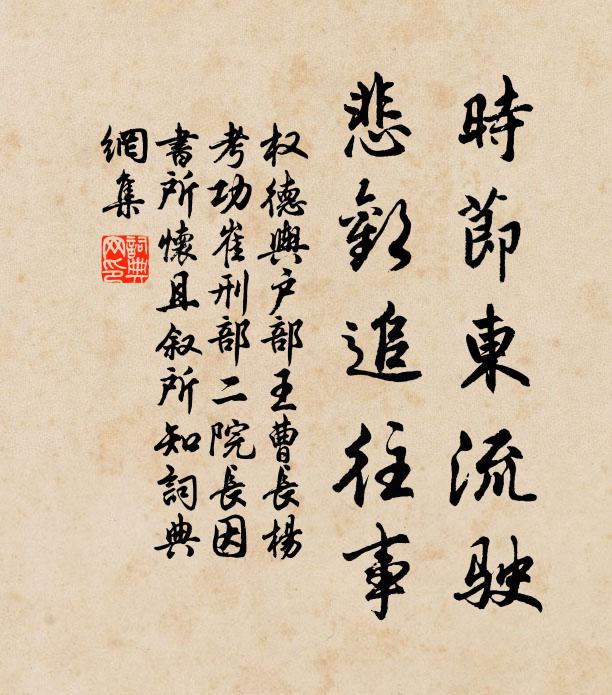 時節東流駛
悲歡追往事
权德輿户部王曹長楊
考功崔刑部二院長因
書所懷且叙所知詞典
網集
詞典网印